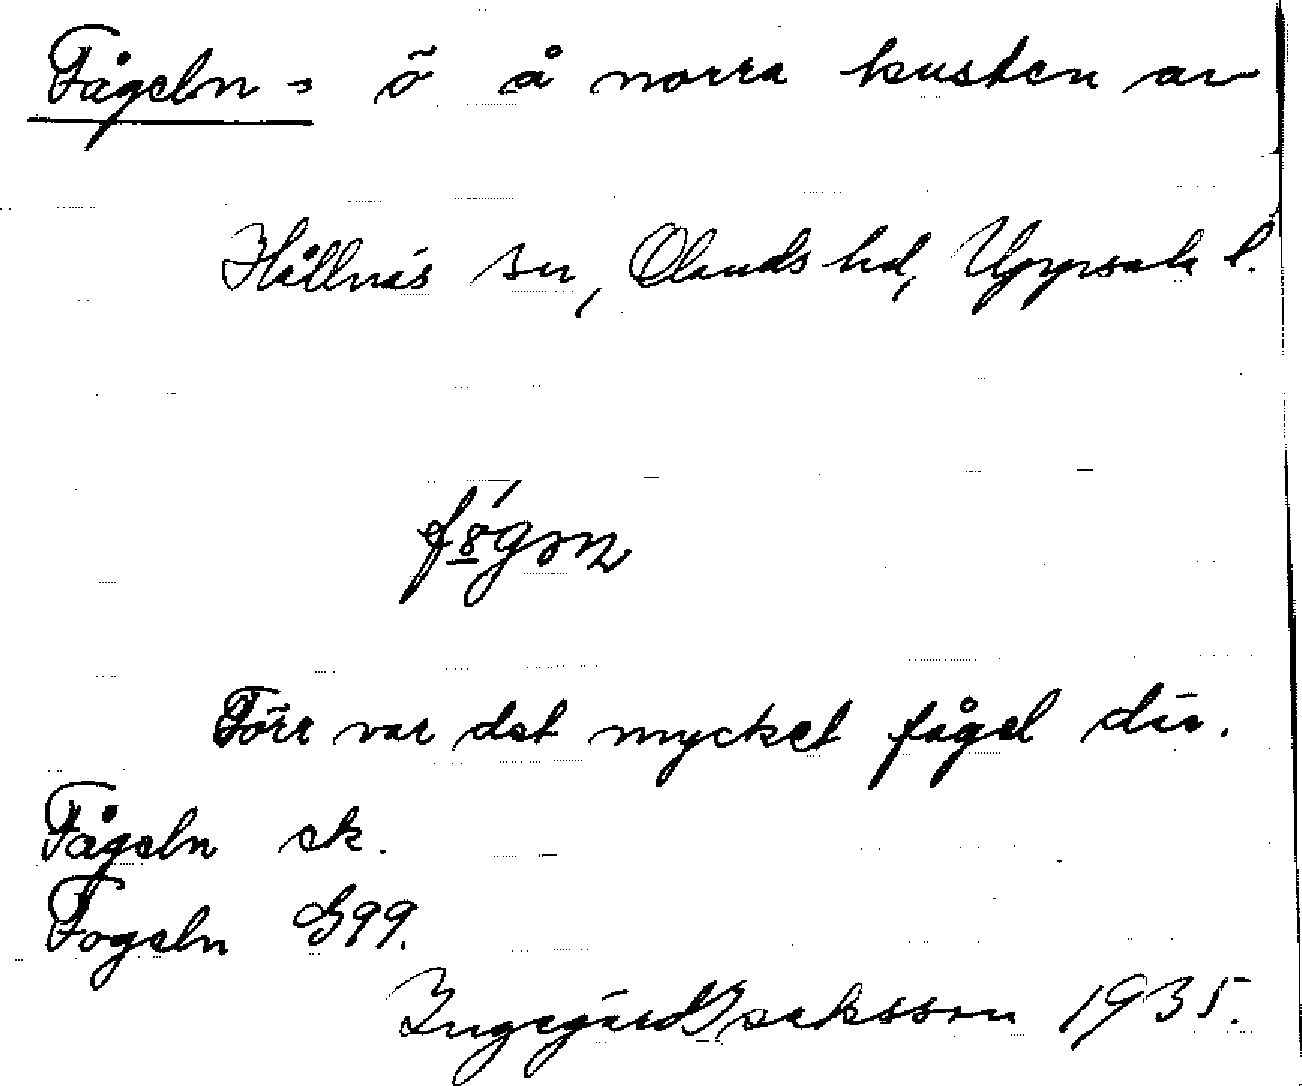 Fågeln = ö å norra kusten av
Hållnäs sn, Olands hd, Uppsala l.
Förr var det mycket fågel där.
Fågeln ek.
Fogeln G99.
Ingegärd Isaksson 1935.